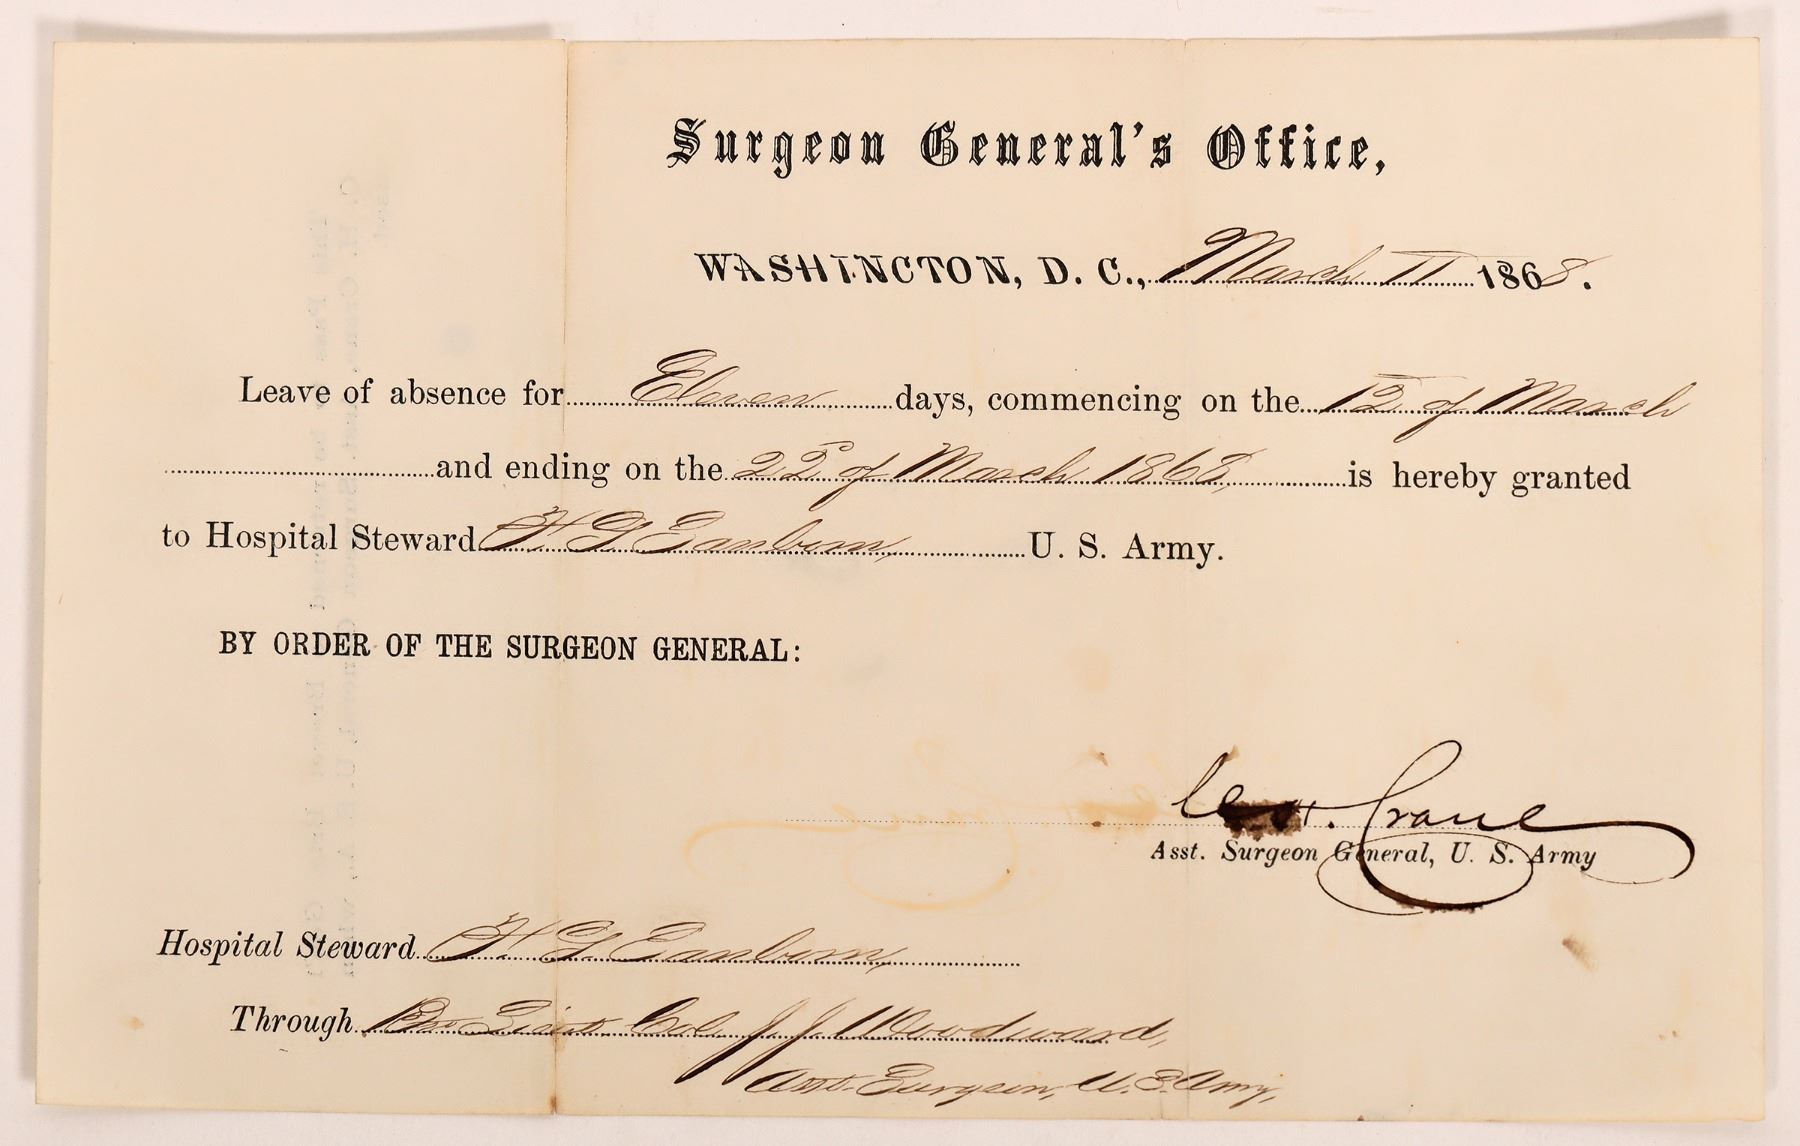 Surgeon General's Office,
WASHINGTON, D. C., March 11 1868.
Leave of absence for Eleven days, commencing on the 12 of March
and ending on the 22d of March 1868, is hereby granted
to Hospital Steward U. S. Army.
BY ORDER OF THE SURGEON GENERAL:
H. Crane
Asst. Surgeon General, U. S. Army
Hospital Steward
Through Bvt Lieut Col J J Woodward,
Asst. Surgeon, U. S. Army,